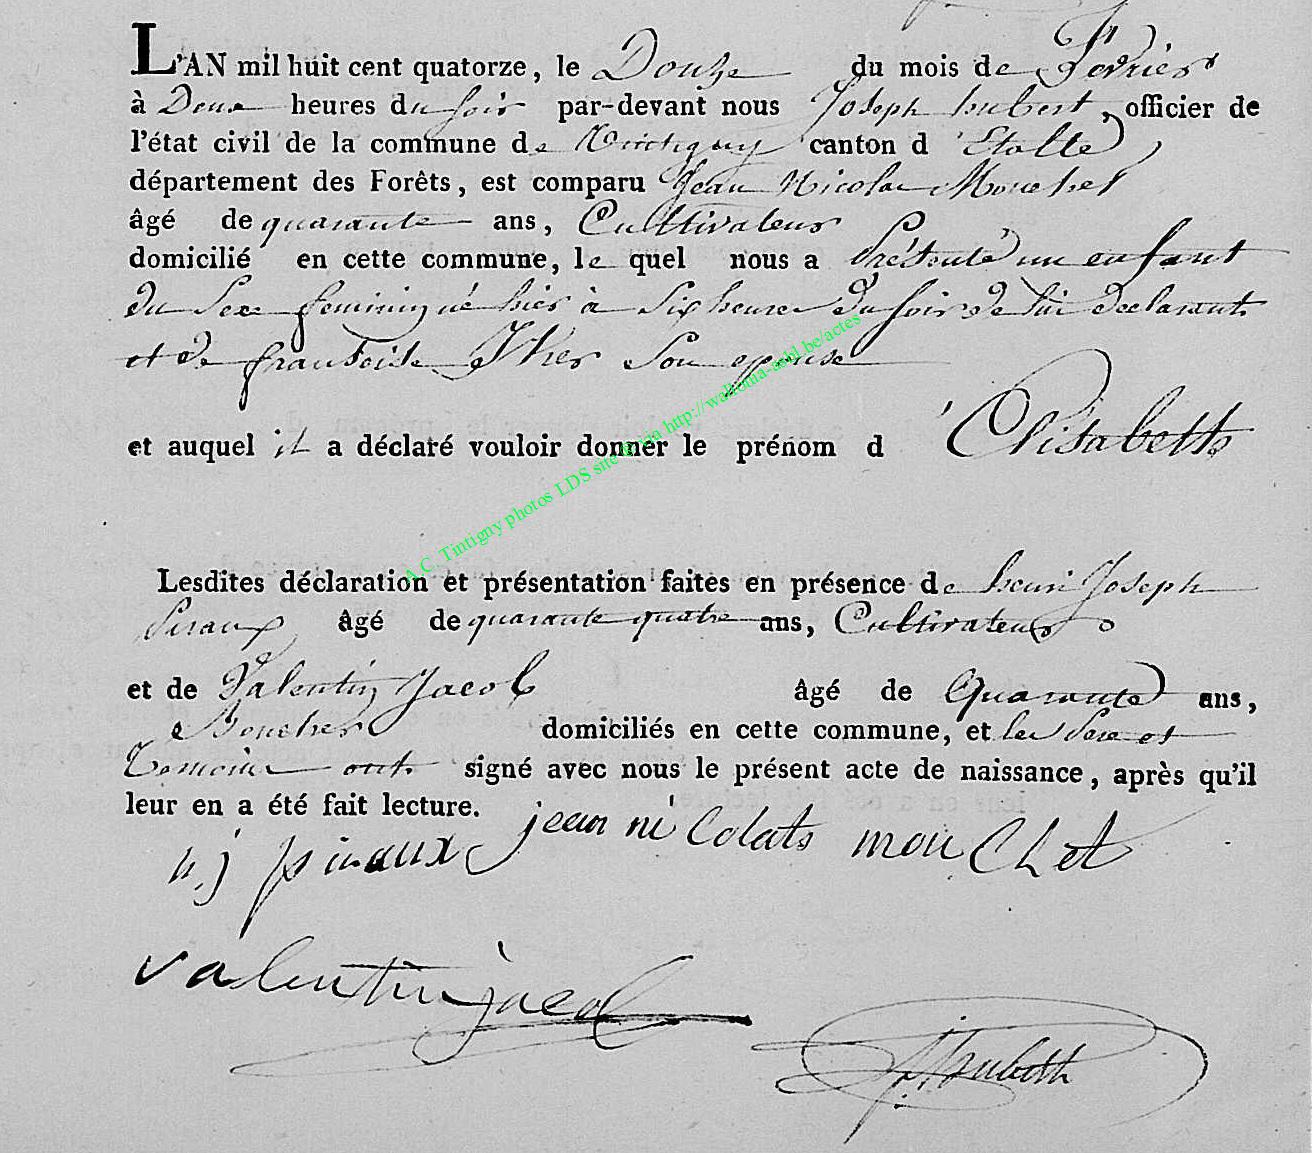 L'AN mil huit cent quatorze, le Douze du mois de Fevrier
à Deux heures du soir par-devant nous Joseph hubert, officier de
l'état civil de la commune de Tintigny canton d'Etalle,
département des Forêts, est comparu Jean Nicolas Mouchet
âgé de quarante ans, Cultivateur
domicilié en cette commune, le quel nous a présenté un enfant
du Sexe feminin né hier à Six heures du soir de lui declarant
et de francoise Son epouse
et auquel il a déclaré vouloir donner le prénom d'Elisabeth
Lesdites déclaration et présentation faites en présence de henri Joseph
âgé de quarante quatre ans, Cultivateur
et de Valentin Jacob âgé de Quarante ans,
Boucher domiciliés en cette commune, et les Pere et
Temoins ont signé avec nous le présent acte de naissance, après qu'il
leur en a été fait lecture.
jean nicolats mouchet
h j
valentin jacob
A.C. Tintigny photos LDS site @ via http://wallonia-asbl.be/actes